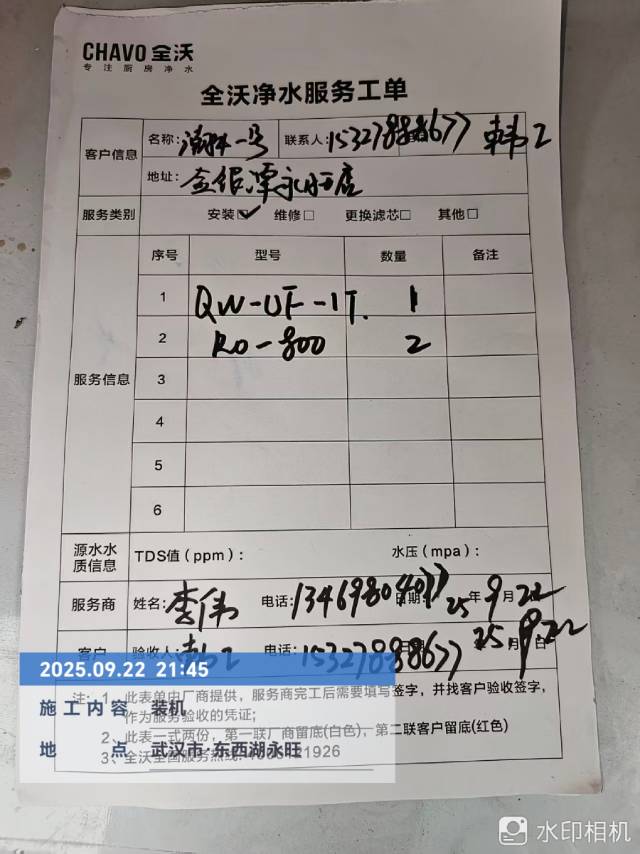 CHAVO 全沃
专注厨房净水
全沃净水服务工单
客户信息
名称: 一号 联系人: 15327888677 韩工
地址: 金银潭永旺店
服务类别 安装☑ 维修□ 更换滤芯□ 其他□
服务信息
序号 型号 数量 备注
1 QW-UF-1T. 1
2 RO-800 2
3
4
5
6
源水水质信息 TDS值（ppm）: 水压（mpa）:
服务商 姓名: 李伟 电话: 日期: 25年9月22
客户 验收人: 韩工 电话: 15327888677 25年9月22日
注: 1、此表单由厂商提供，服务商完工后需要填写签字，并找客户验收签字，
作为服务验收的凭证;
2、此表一式两份，第一联厂商留底(白色)，第二联客户留底(红色)
3、全沃全国服务热线:
2025.09.22 21:45
施工内容 装机
地点 武汉市·东西湖永旺
水印相机